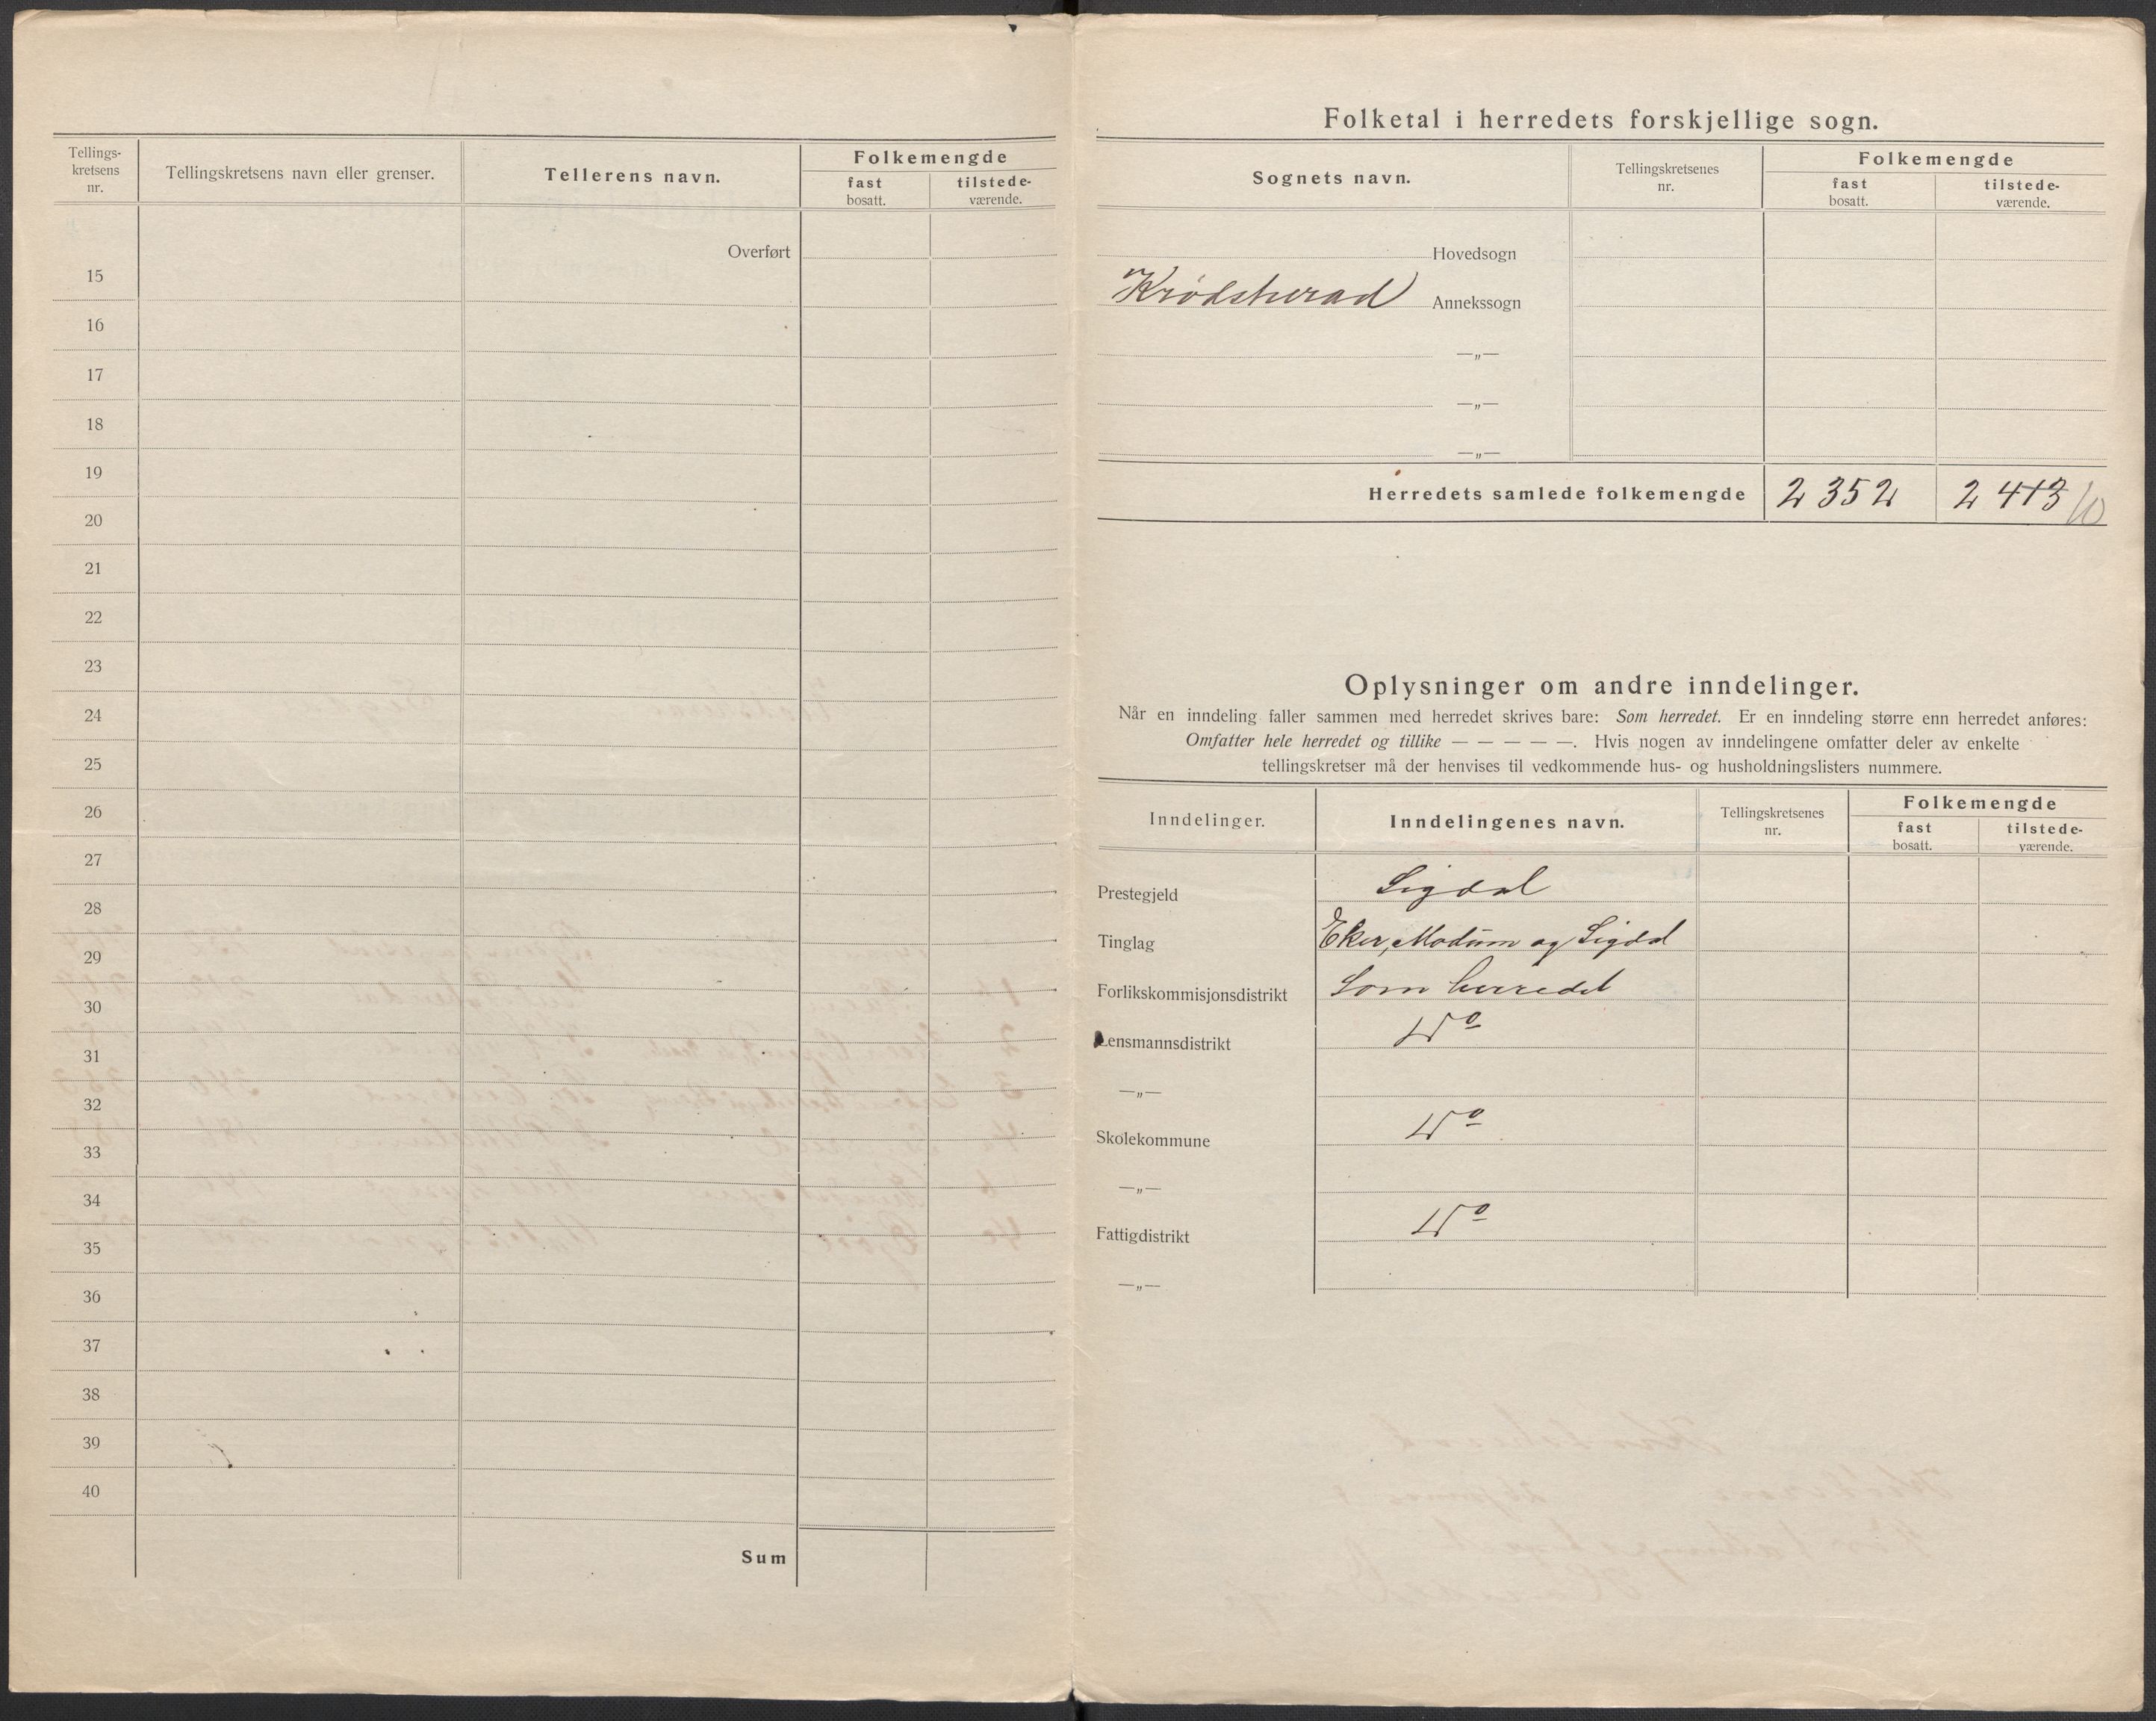 Tellings-
kretsens
nr.
Tellingskretsens navn eller grenser.
Tellerens navn.
Folkemengde
fast
bosatt.
tilstede-
værende.
Overført
15
16
17
18
19
20
21
22
23
24
25
26
27
28
29
30
31
32
33
34
35
36
37
38
39
40
Sum
Folketal i herredets forskjellige sogn.
Sognets navn.
Tellingskretsenes
nr.
Folkemengde
fast
bosatt.
tilstede-
værende.
Hovedsogn
Krødsherad Annekssogn
—„—
—„—
—„—
Herredets samlede folkemengde 2 352 2 413 10
Oplysninger om andre inndelinger.
Når en inndeling faller sammen med herredet skrives bare: Som herredet. Er en inndeling større enn herredet anføres:
Omfatter hele herredet og tillike — — — — —. Hvis nogen av inndelingene omfatter deler av enkelte
tellingskretser må der henvises til vedkommende hus- og husholdningslisters nummere.
Inndelinger.
Inndelingenes navn.
Tellingskretsenes
nr.
Folkemengde
fast
bosatt.
tilstede-
værende.
Prestegjeld Sigdal
Tinglag Eker, Modum og Sigdal
Forlikskommisjonsdistrikt Som herredet
Lensmannsdistrikt Do
—„—
Skolekommune Do
—„—
Fattigdistrikt Do
—„—